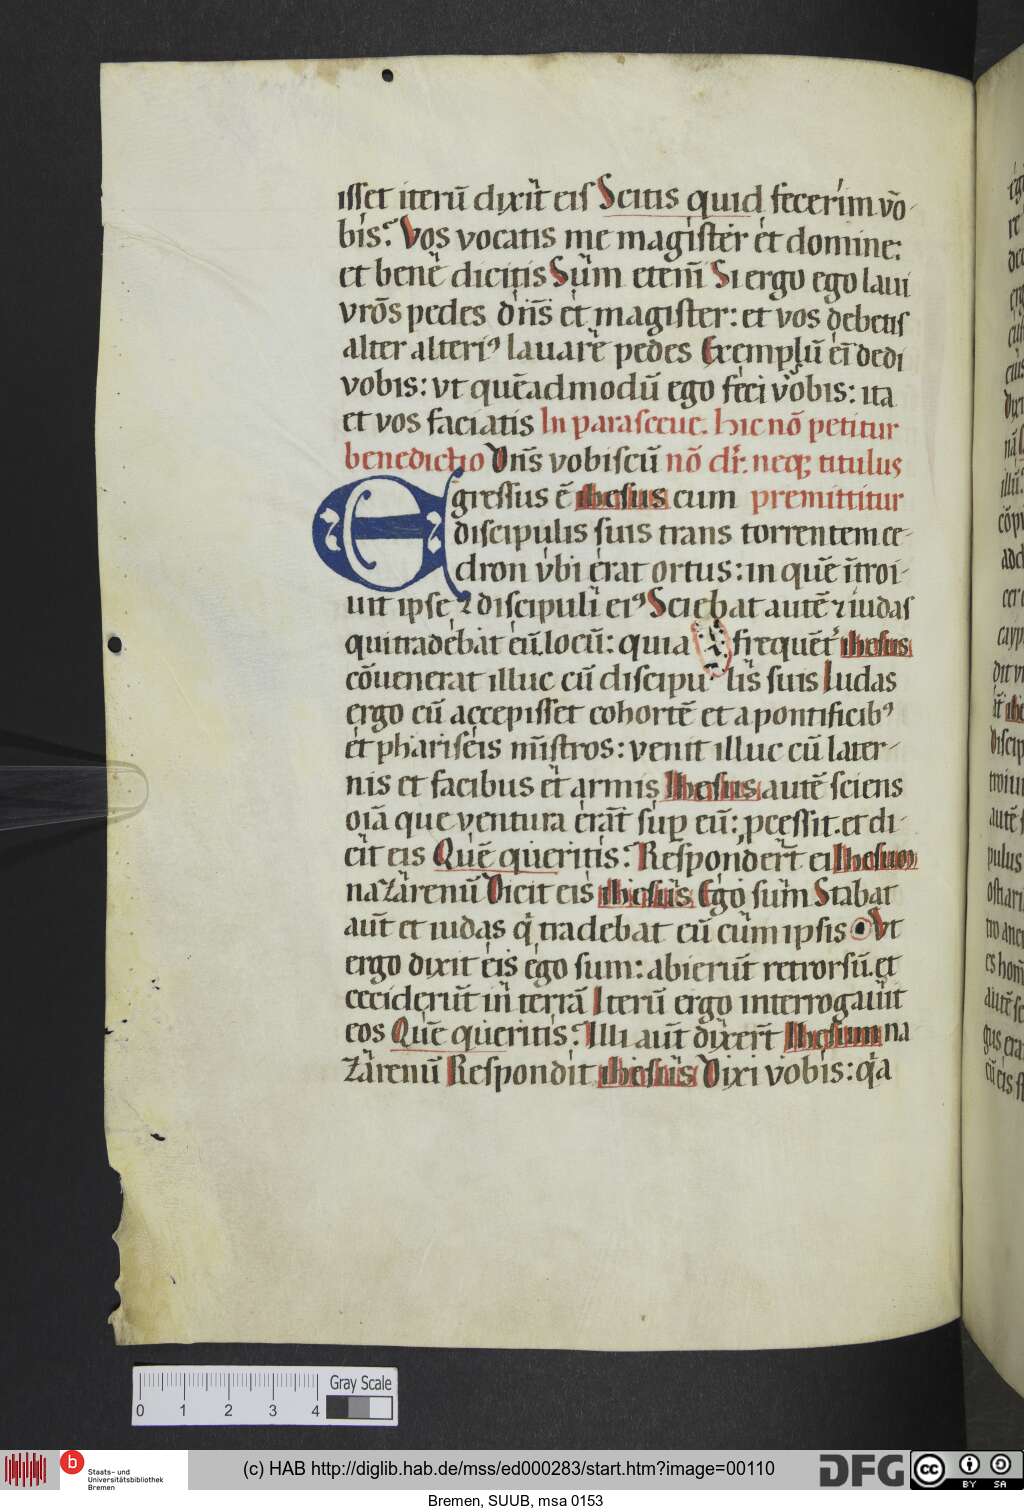 isset iterū dixit eis Scitis quid fecerim vo-
bis? Vos vocatis me magister et domine:
et bene dicitis Sum eteni Si ergo ego laui
vr̄os pedes dn̄s et magister: et vos debetis
alter alteriꝰ lauare pedes Exemplū ei dedi
vobis: vt quēadmodū ego feci vobis: ita
et vos faciatis In parasceue. hic nō petitur
benedictio Dn̄s vobiscū nō dr̄. neqꝫ titulus
Egressus ē ihesus cum premittitur
discipulis suis trans torrentem ce-
dron vbi erat ortus: in quē ītroi-
uit ipse ⁊ discipuli eiꝰ Sciebat autē ⁊ iudas
qui tradebat eū locū: quia frequēt᷑ ihesus
cōuenerat illuc cū discipulis suis Iudas
ergo cū accepisset cohortē et a pontificibꝰ
et phariseis mīstros: venit illuc cū later-
nis et facibus et armis Ihesus autē sciens
oīa que ventura erāt suꝑ eū: ꝓcessit. et di-
cit eis Quē queritis? Respondert̄ ei Ihesum
nazarenū Dicit eis ihesus Ego sum Stabat
aut̄ et iudas qi tradebat eū cum ipsis Vt
ergo dixit eis ego sum: abierūt retrorsū. et
ceciderūt in terrā Iterū ergo interrogauit
eos Quē queritis? Illi aut̄ dixert̄ Ihesum na
zarenū Respondit ihesus Dixi vobis: qia
0 1 2 3 4 Gray Scale
b Staats- und
Universitätsbibliothek
Bremen
(c) HAB http://diglib.hab.de/mss/ed000283/start.htm?image=00110
DFG
cc BY SA
Bremen, SUUB, msa 0153